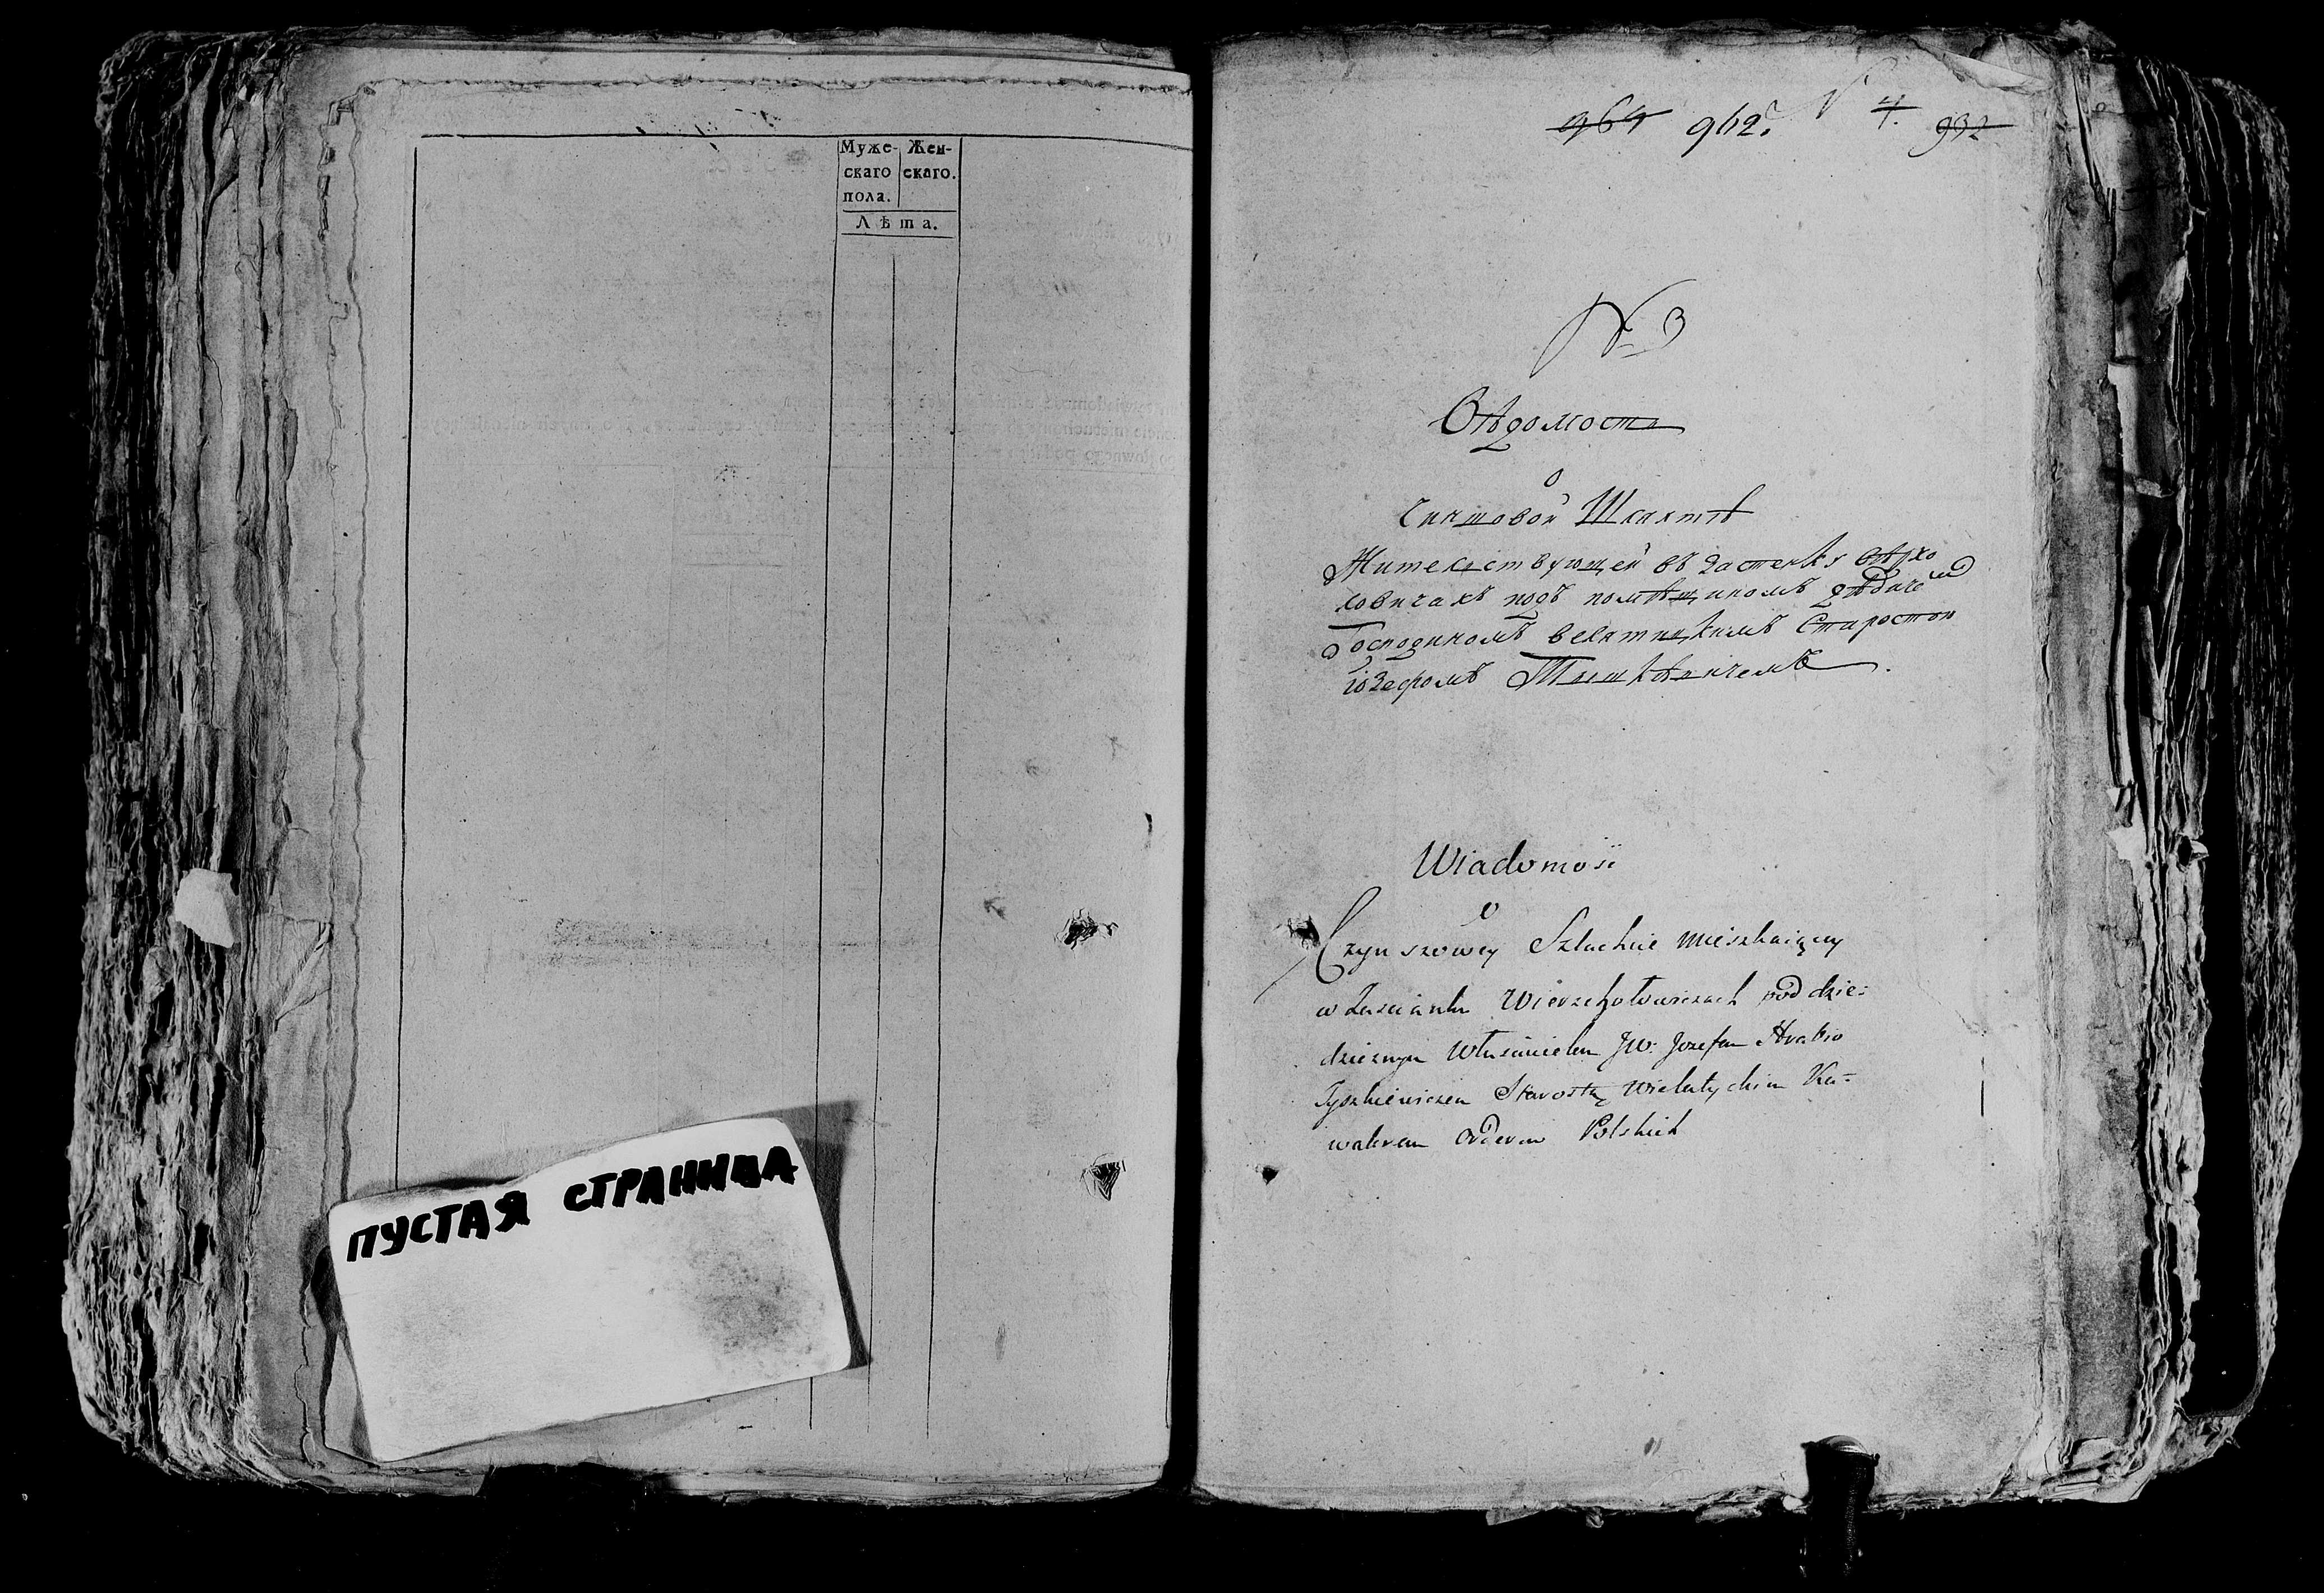 Муже- Жен-
скаго скаго.
пола.
Лѣта.
ПУСТАЯ СТРАНИЦА
964 962. N 4. 932
N 3
Вѣдомость
о
Чиншовой Шляхтѣ
Жительствующей въ Застенку Вѣрхо
ловичахъ подъ помѣщикомъ дѣдичемъ
Господиномъ Велятицкимъ Старостою
Юзефомъ Тышкѣвичемъ.
Wiadomość
o
Czynszowey Szlachcie mieszkaiącey
w Zascianku Wierzchołowiczach pod dzie:
dzicznym Właścicielem JW: Jozefem Hrabio
Tyszkiewiczem Starostą Wielatyckim Ka=
walerem Orderow Polskich